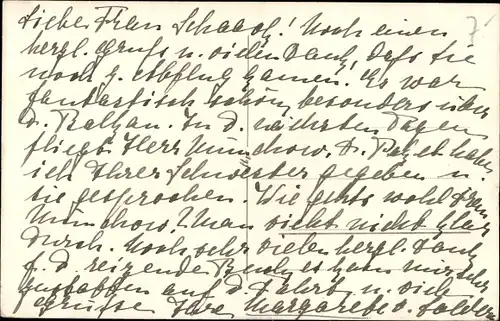 Liebe Frau Schaaf! Noch einen
herzl. Gruss u. vielen Dank, dass Sie
noch z. Abflug kamen. Es war
fantastisch schön besonders über
d. Balkan. In d. nächsten Tagen
fliegt Herr Münchow. D. Paket habe
ich Ihrer Schwester gegeben u.
sie gesprochen. Wie gehts wohl Frau
Münchow? Man sieht nicht klar
durch. Noch sehr vielen herzl. Dank
f. d. reizende Buch, es hat mir sehr
geholfen auf d. Fahrt u. viele
Grüsse Ihre Margarete v.